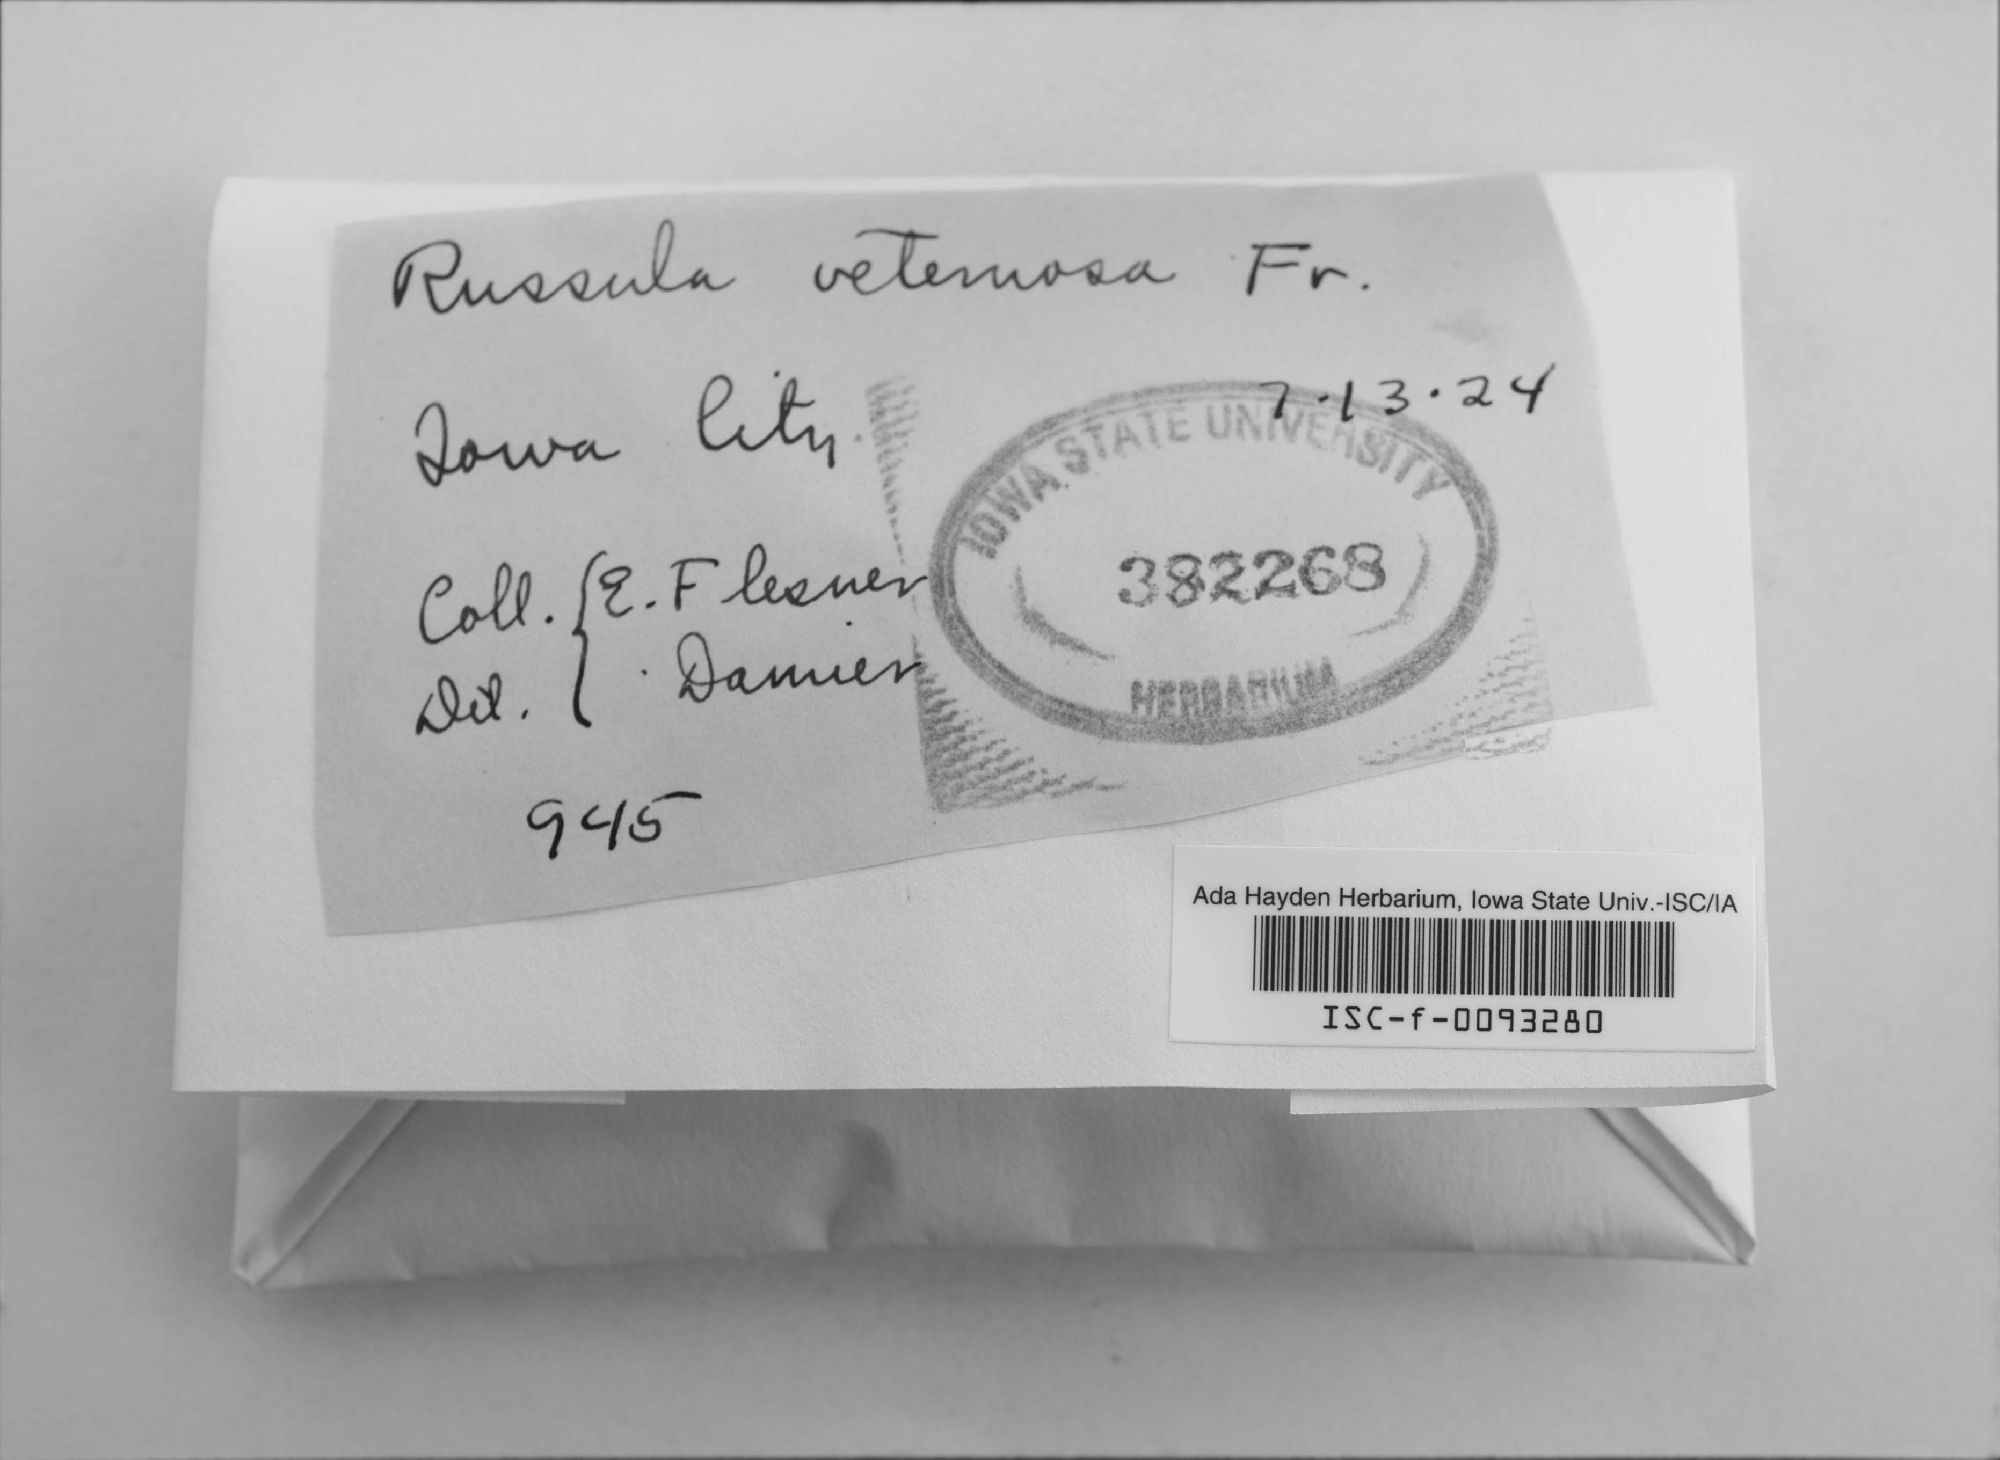 Russula veternosa Fr.
7.13.24
Iowa City
IOWA STATE UNIVERSITY
382268
HERBARIUM
Coll. { E. Flesner
Det. { Damier
945
Ada Hayden Herbarium, Iowa State Univ.-ISC/IA
ISC-f-0093280